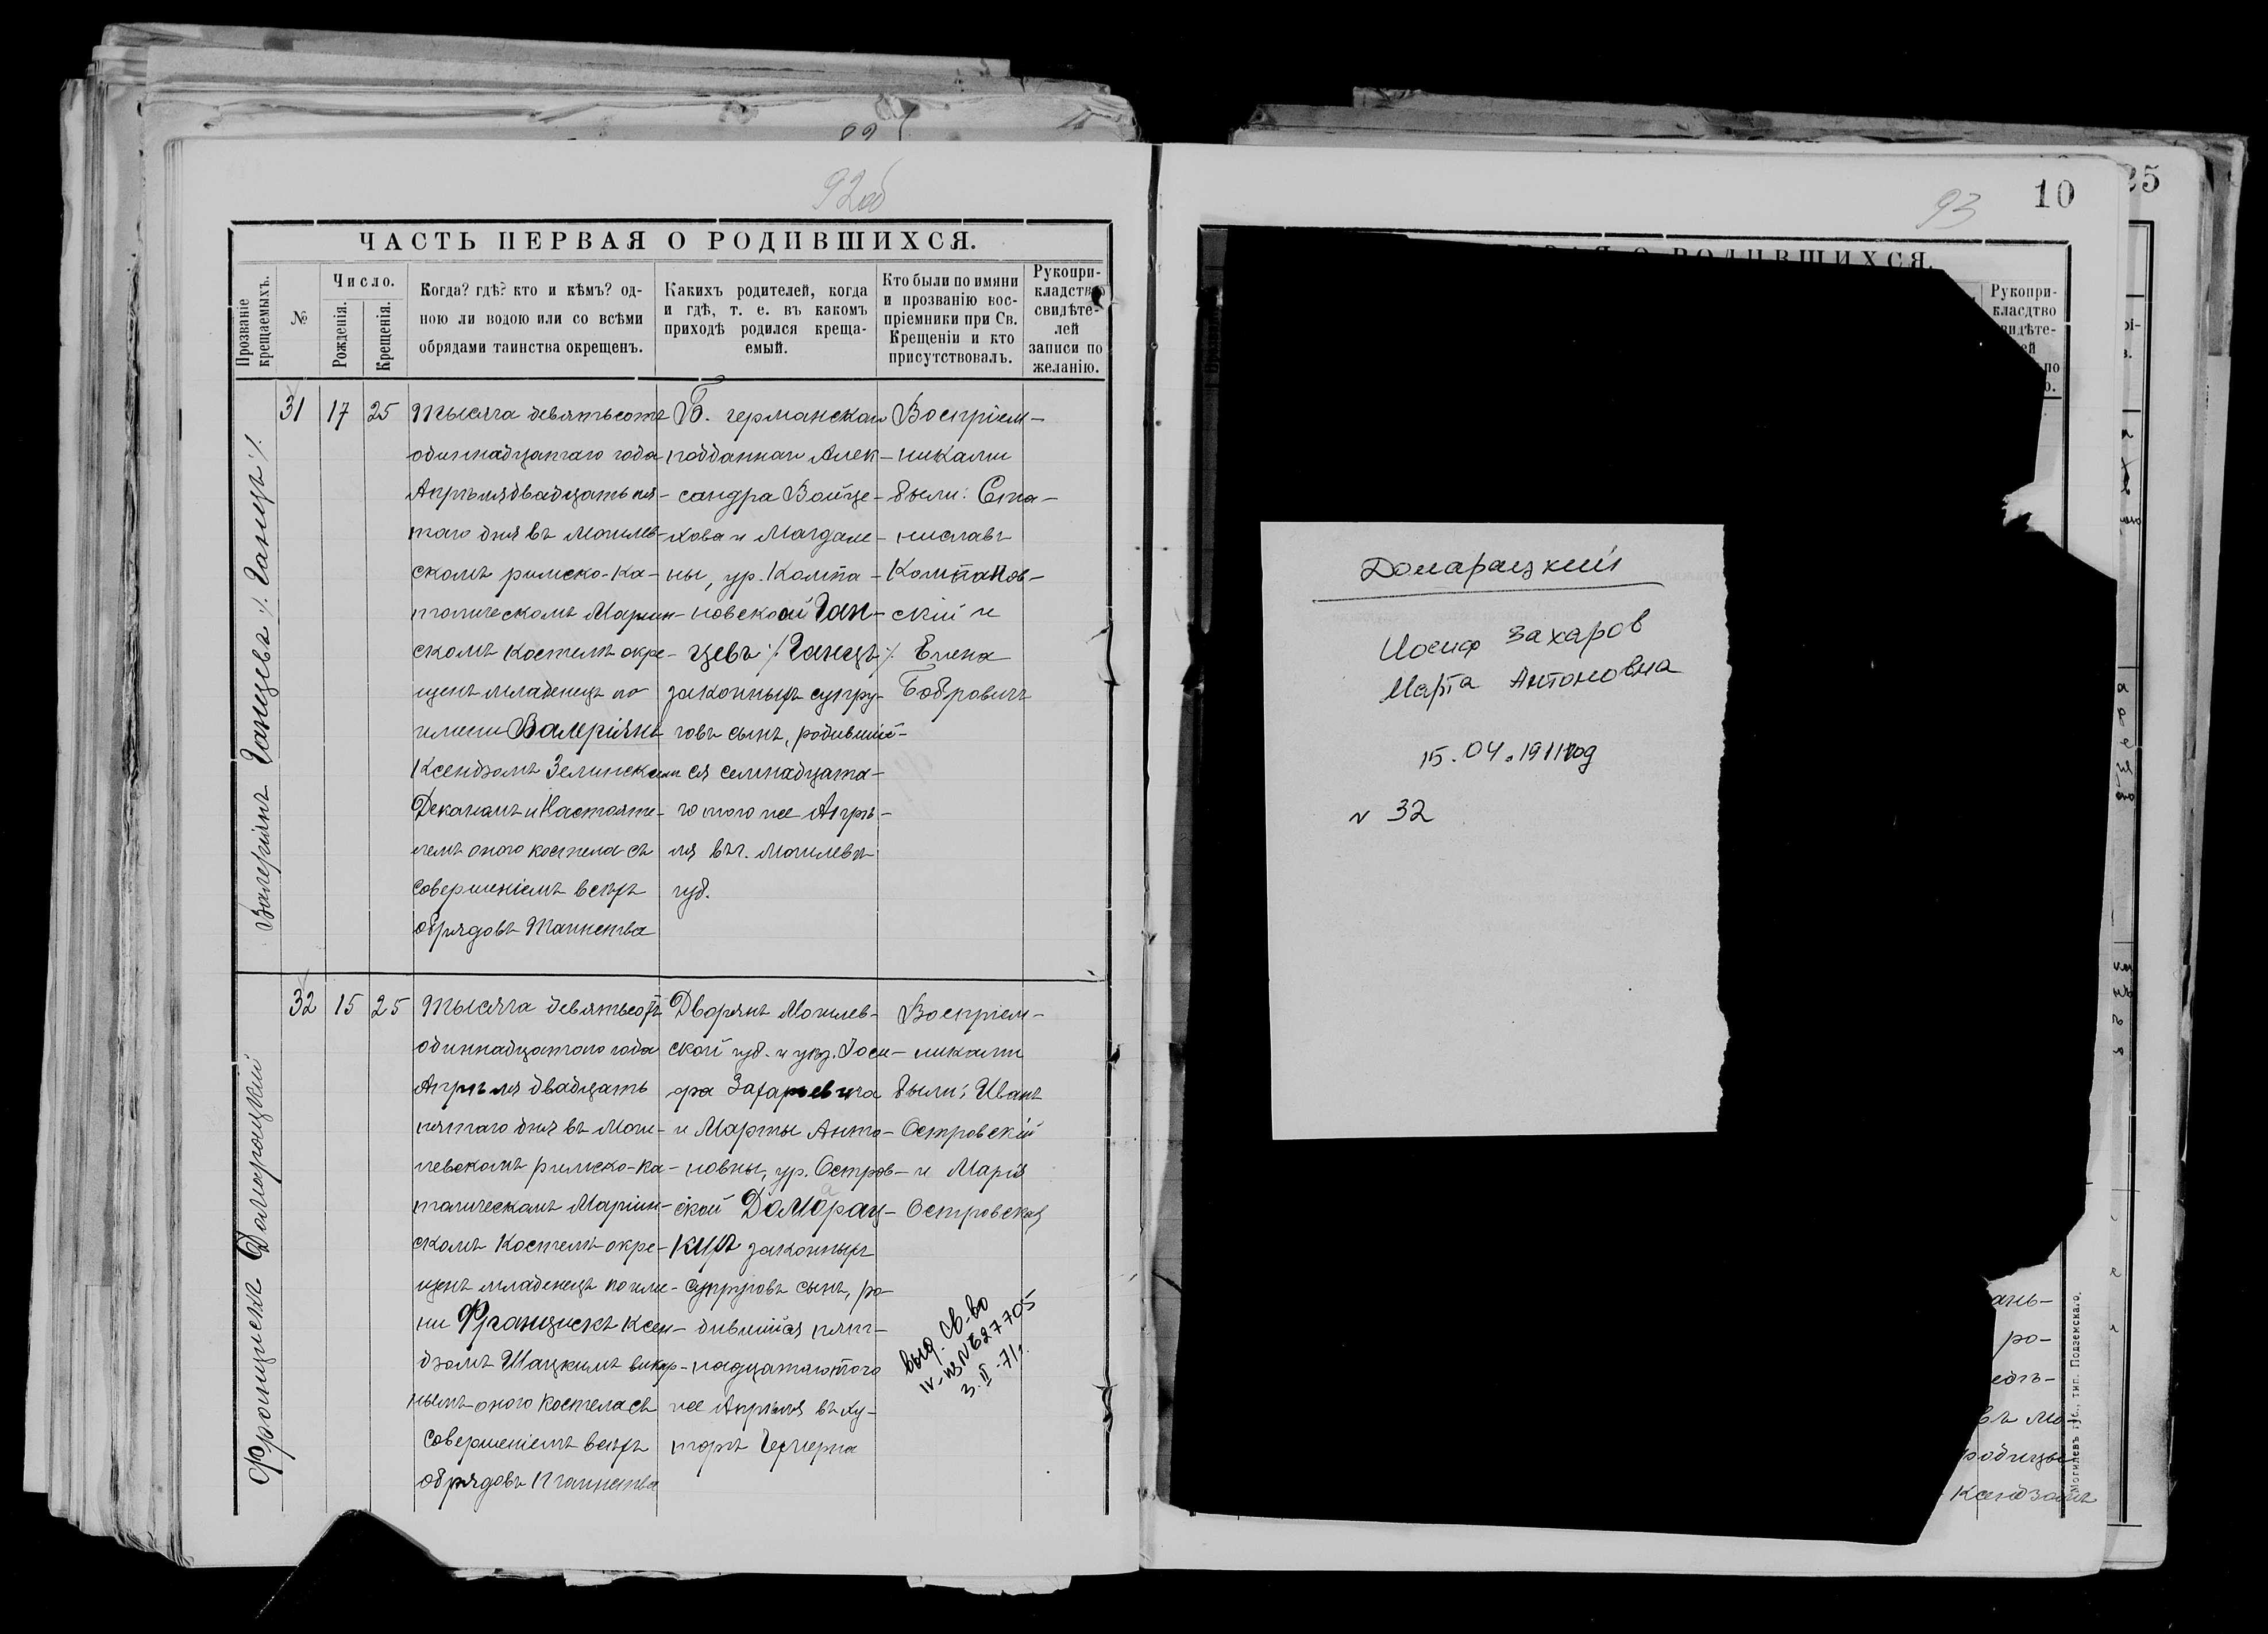 92об
ЧАСТЬ ПЕРВАЯ О РОДИВШИХСЯ.
Прозваніе крещаемыхъ.
№
Число.
Рожденія.
Крещенія.
Когда? гдѣ? кто и кѣмъ? од-
ною ли водою или со всѣми
обрядами таинства окрещенъ.
Какихъ родителей, когда
и гдѣ, т. е. въ какомъ
приходѣ родился креща-
емый.
Кто были по имяни
и прозванію вос-
пріемники при Св.
Крещеніи и кто
присутствовалъ.
Рукопри-
кладство
свидѣте-
лей
записи по
желанію.
Валеріянъ Ганцевъ ./. Ганцъ ./.
31
17
25
Тысяча девятьсотъ
одиннадцатаго года
Апрѣля двадцать пя-
таго дня въ Могилев-
скомъ римско-ка-
толическомъ Маріин-
скомъ костелѣ окре-
щенъ младенецъ по
имени Валеріянъ
Ксендзомъ Зелинскимъ
Деканомъ и Настояте-
лемъ оного костела съ
совершеніемъ всѣхъ
обрядовъ Таинства
Б. германскаго
подданнаго Алек-
сандра Войце-
хова и Магдале-
ны, ур. Компа-
новской Ган-
цевъ ./. Ганцъ ./.
законныхъ супру-
говъ сынъ, родивший-
ся семнадцата-
го того же Апрѣ-
ля въ г. Могилевѣ
губ.
Воспріем-
никами
были: Ста-
ниславъ
Компанов-
скій и
Елена
Бобровичъ
Францискъ Домарацкій
32
15
25
Тысяча девятьсотъ
одиннадцатаго года
Апрѣля двадцать
пятаго дня въ Моги-
левскомъ римско-ка-
толическомъ Маріин-
скомъ Костелѣ окре-
щенъ младенецъ по име-
ни Францискъ Ксен-
дзомъ Шацкимъ викар-
нымъ оного костела съ
совершеніемъ всѣхъ
обрядовъ Таинства
Дворянъ Могилев-
ской губ. и уѣз. Іоси-
фа Захарьевича
и Марты Анто-
новны, ур. Остров-
ской Домарац-
кихъ законныхъ
супруговъ сынъ, ро-
дившійся пят-
надцатаго того
же Апрѣля въ ху-
торѣ
Воспріем-
никами
были: Иванъ
Островскій
и Марія
Островская
Выд. св-во
IV-ИЗ № 627705
3.II-71г.
93
10
25
РОДИВШИХСЯ.
Рукопри-
класдтво
видѣте-
ей
по
о.
Домарацкий
Иосиф Захаров
Марта Антоновна
15.04.1911 год
N 32
ань-
ро-
въ Мо-
родицы
Ксендзомъ
Могилевъ губ., тип. Подземскаго.